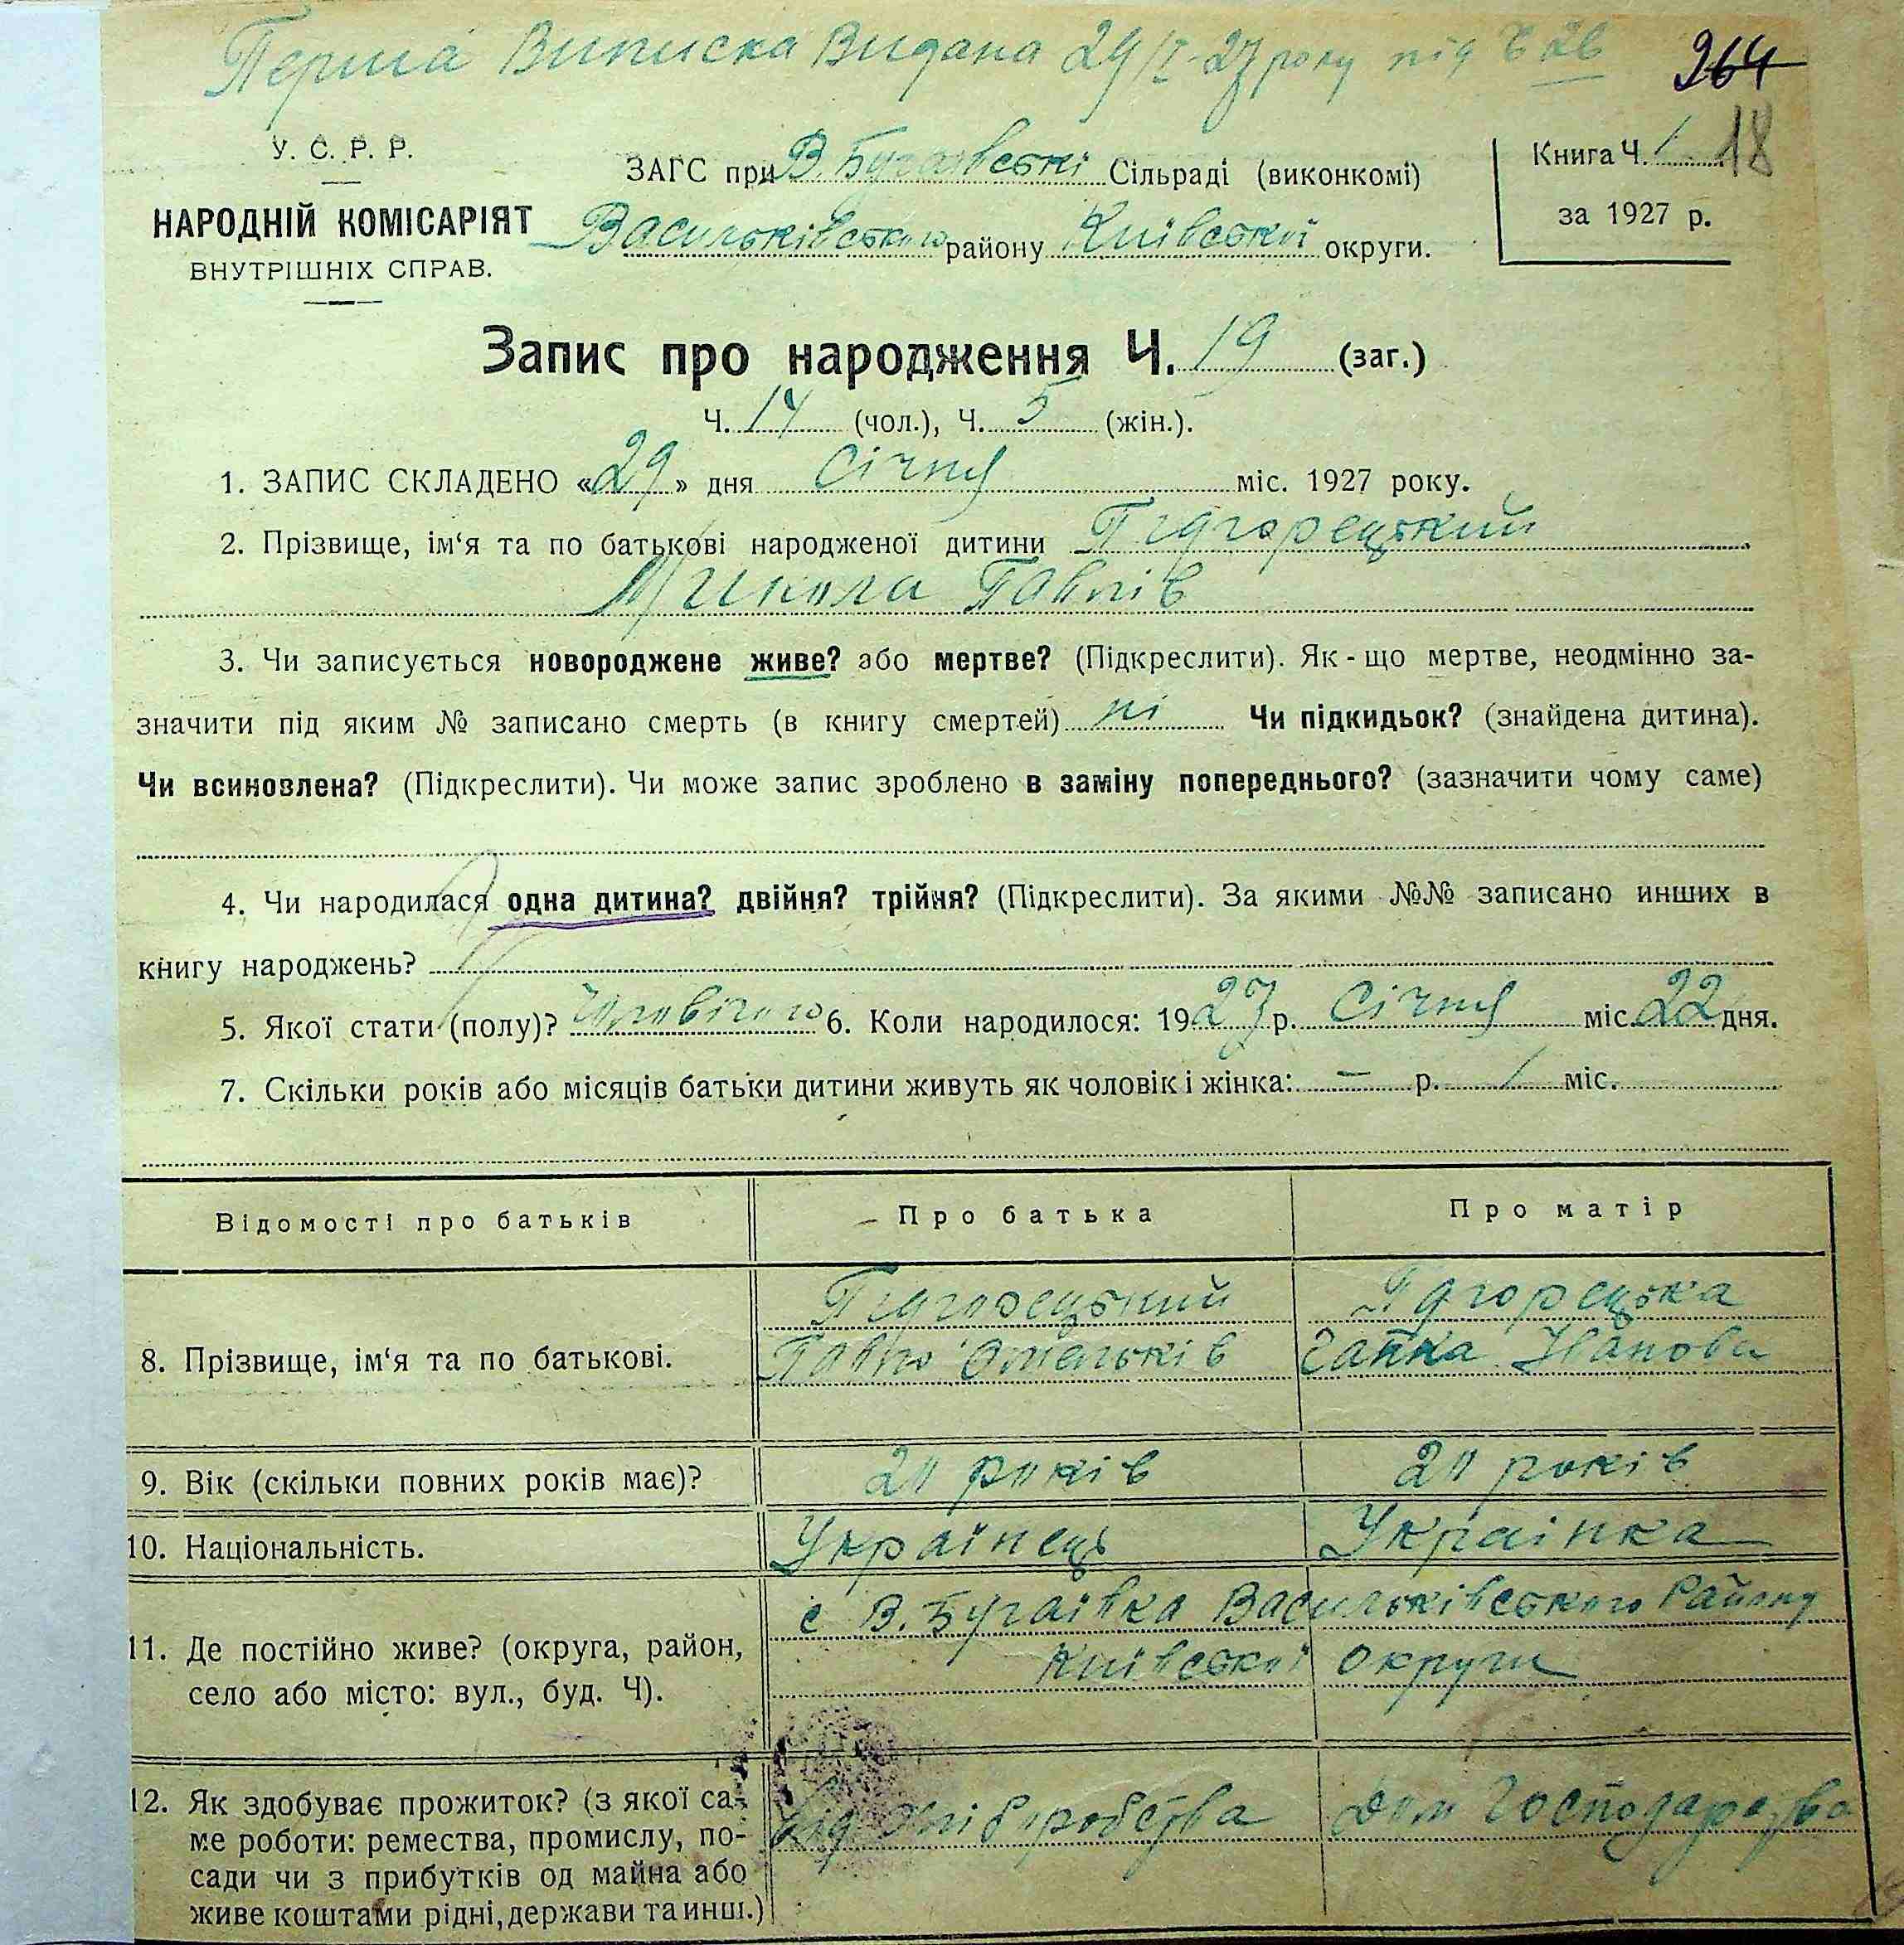 Перша Виписка Видана 29/I-27 року під Ч 26
264
18
У. С. Р. Р.
НАРОДНІЙ КОМІСАРІЯТ
ВНУТРІШНІХ СПРАВ.
ЗАГС при В. Бугаївські Сільраді (виконкомі)
Васильківського району Київської округи.
Книга Ч. 1
за 1927 р.
Запис про народження Ч. 19 (заг.)
Ч. 14 (чол.), Ч. 5 (жін.).
1. ЗАПИС СКЛАДЕНО «29» дня Січня міс. 1927 року.
2. Прізвище, ім‘я та по батькові народженої дитини Підгорецький
Микола Павлів
3. Чи записується новороджене живе? або мертве? (Підкреслити). Як-що мертве, неодмінно за-
значити під яким № записано смерть (в книгу смертей) ні Чи підкидьок? (знайдена дитина).
Чи всиновлена? (Підкреслити). Чи може запис зроблено в заміну попереднього? (зазначити чому саме)
4. Чи народилася одна дитина? двійня? трійня? (Підкреслити). За якими №№ записано инших в
книгу народжень?
5. Якої стати (полу)? Чоловічого 6. Коли народилося: 1927 р. Січня міс. 22 дня.
7. Скільки років або місяців батьки дитини живуть як чоловік і жінка: — р. 1 міс.
Відомості про батьків Про батька Про матір
8. Прізвище, ім‘я та по батькові.
Підгорецький Підгорецька
Павло Омельків Ганна Іванова
9. Вік (скільки повних років має)? 20 років 20 років
10. Національність. Українець Українка
11. Де постійно живе? (округа, район,
село або місто: вул., буд. Ч).
с В. Бугаївка Васильківського Району
Київської округи
12. Як здобуває прожиток? (з якої са-
ме роботи: ремества, промислу, по-
сади чи з прибутків од майна або
живе коштами рідні, держави та инш.)
від хліборобства Дом Господарства